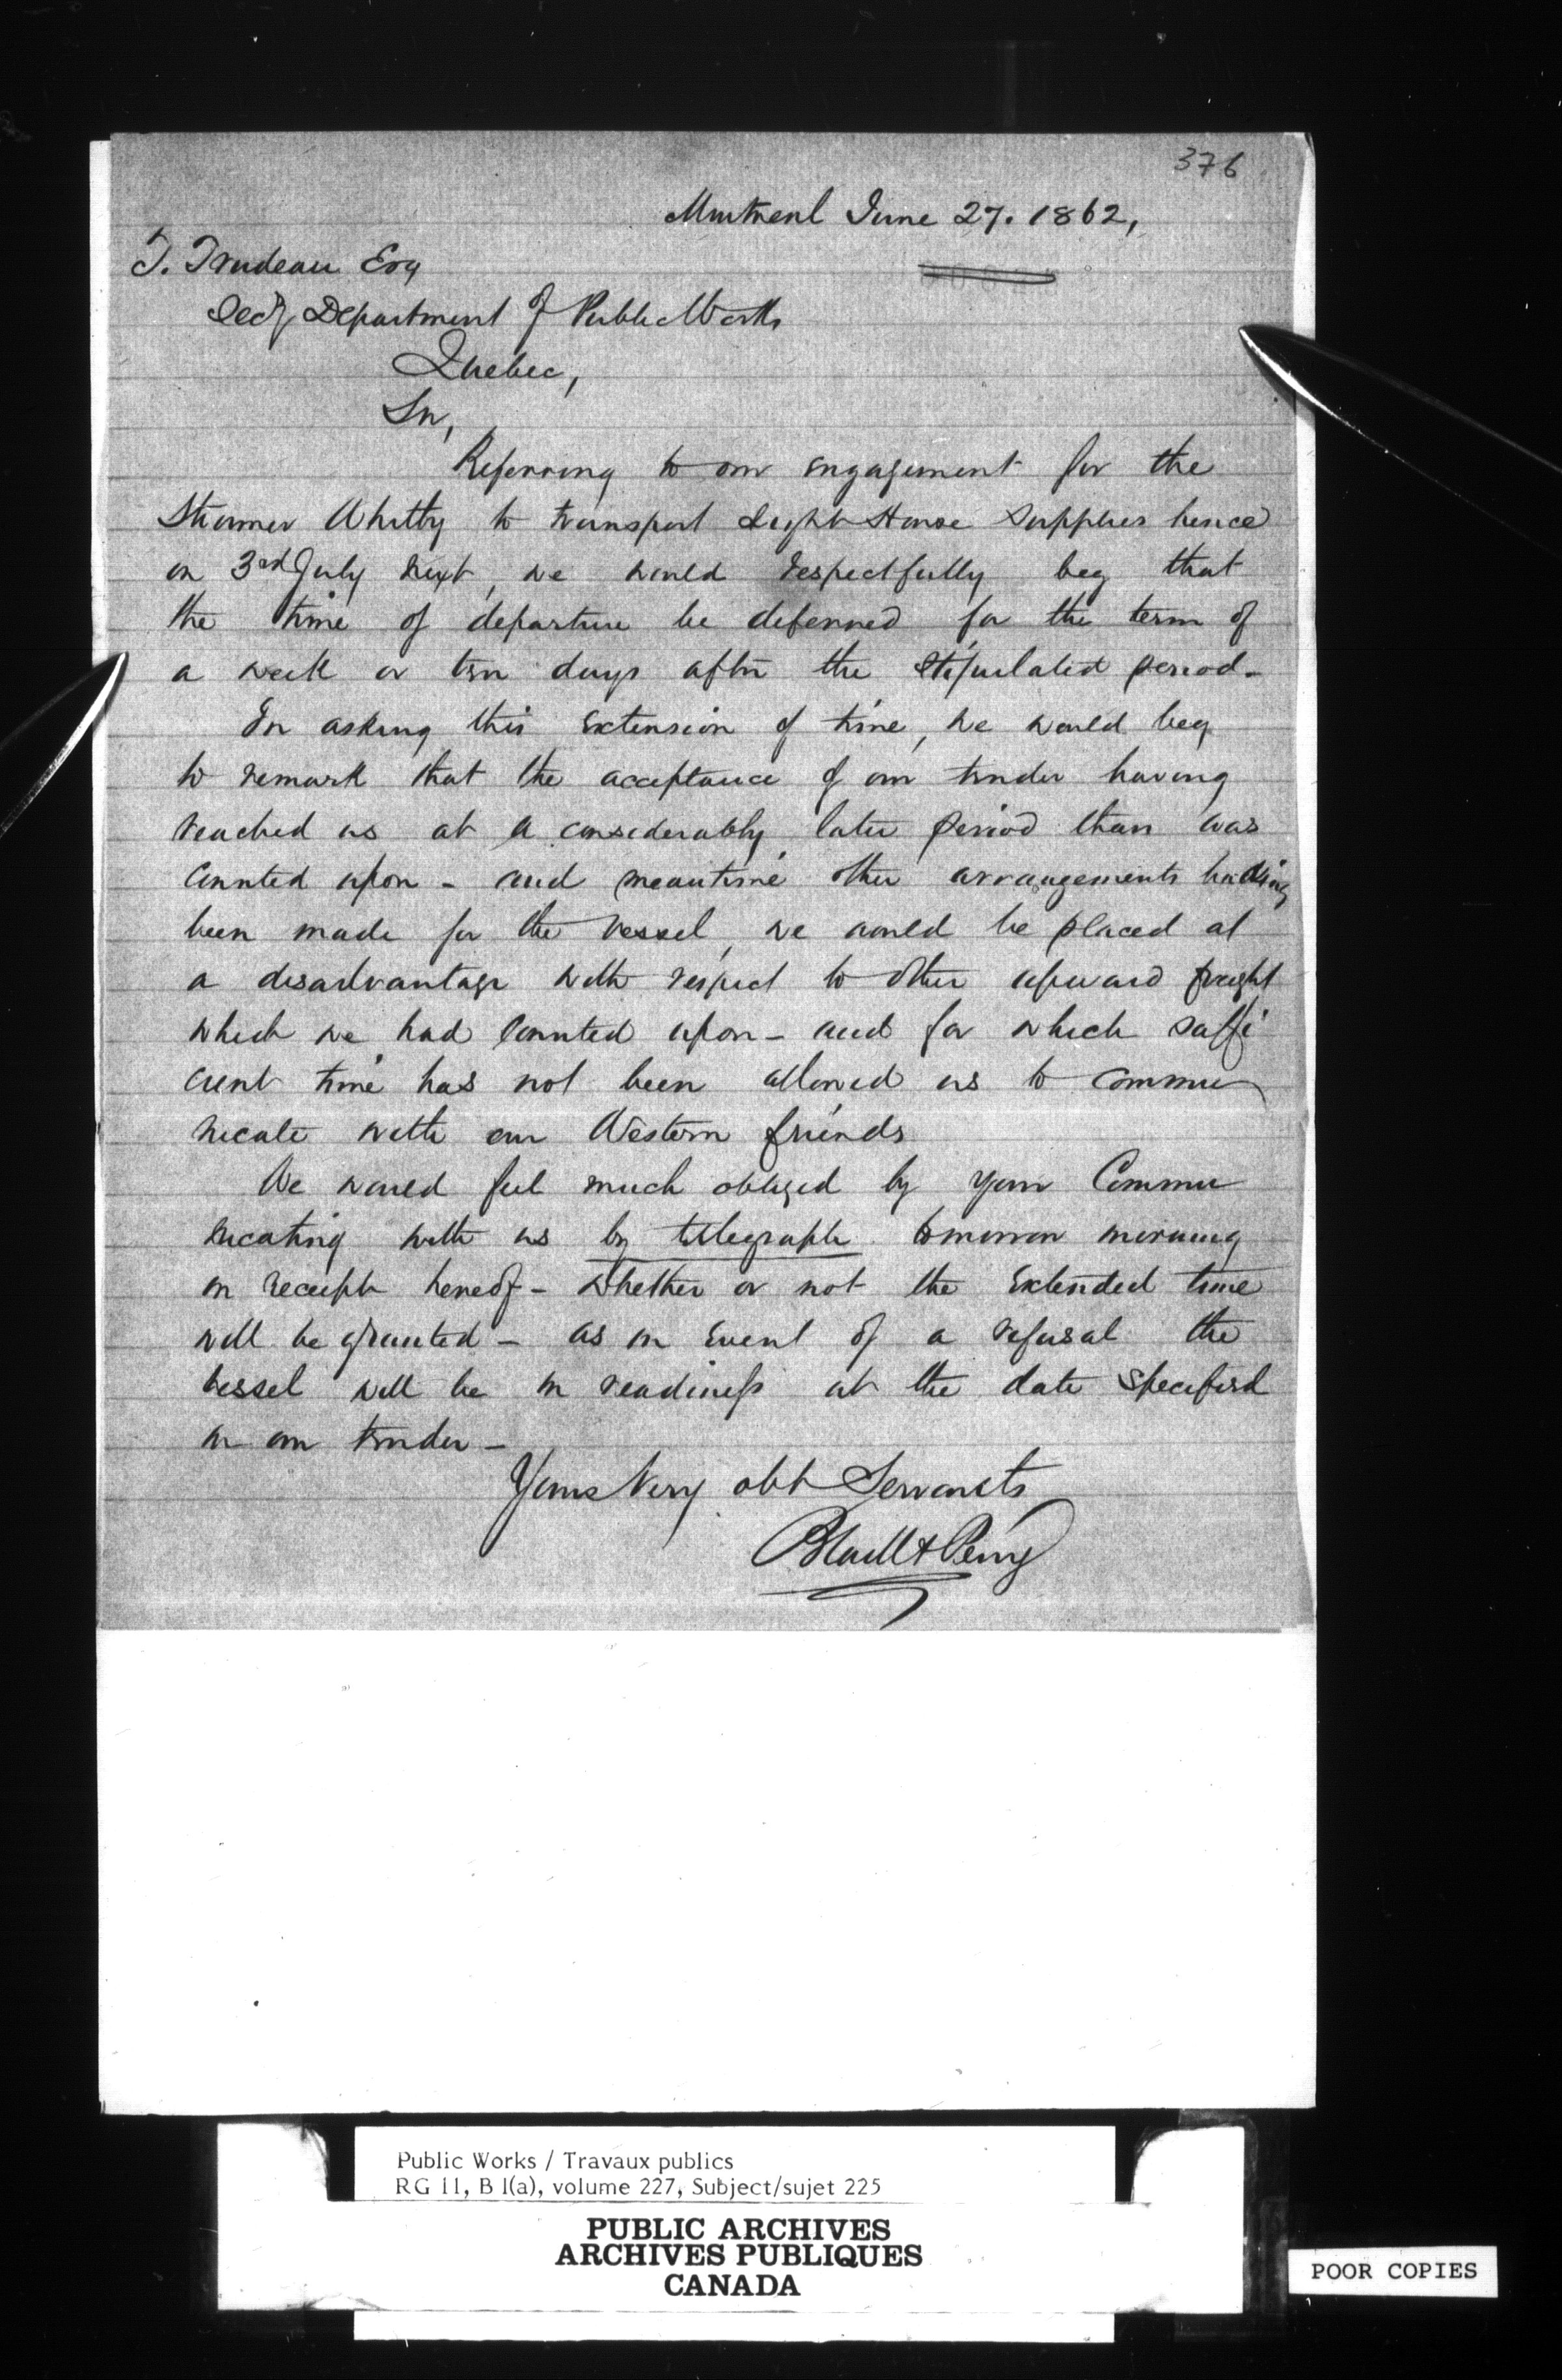 376
Montreal June 27. 1862,
T. Trudeau Esq
Secy Department of Public Works
Quebec,
Sir,
Referring to our engagement for the
Steamer Whitby to transport Light House Supplies hence
on 3rd July next, we would respectfully beg that
the time of departure be deferred for the term of
a week or ten days after the stipulated period -
In asking this extension of time, we would beg
to remark that the acceptance of our tender having
reached us at a considerably later period than was
counted upon - and meantime other arrangements having
been made for the vessel, we would be placed at
a disadvantage with respect to other upward freight
which we had counted upon - and for which suffi
cient time has not been allowed us to commu
nicate with our Western friends
We would feel much obliged by your Commu
nicating with us by telegraph tomorrow morning
on receipt hereof - whether or not the extended time
will be granted - as in event of a refusal the
vessel will be in readiness at the date specified
in our tender -
Yours Very obt Servants
& Perry
Public Works / Travaux publics
RG 11, B 1(a), volume 227, Subject/sujet 225
PUBLIC ARCHIVES
ARCHIVES PUBLIQUES
CANADA
POOR COPIES